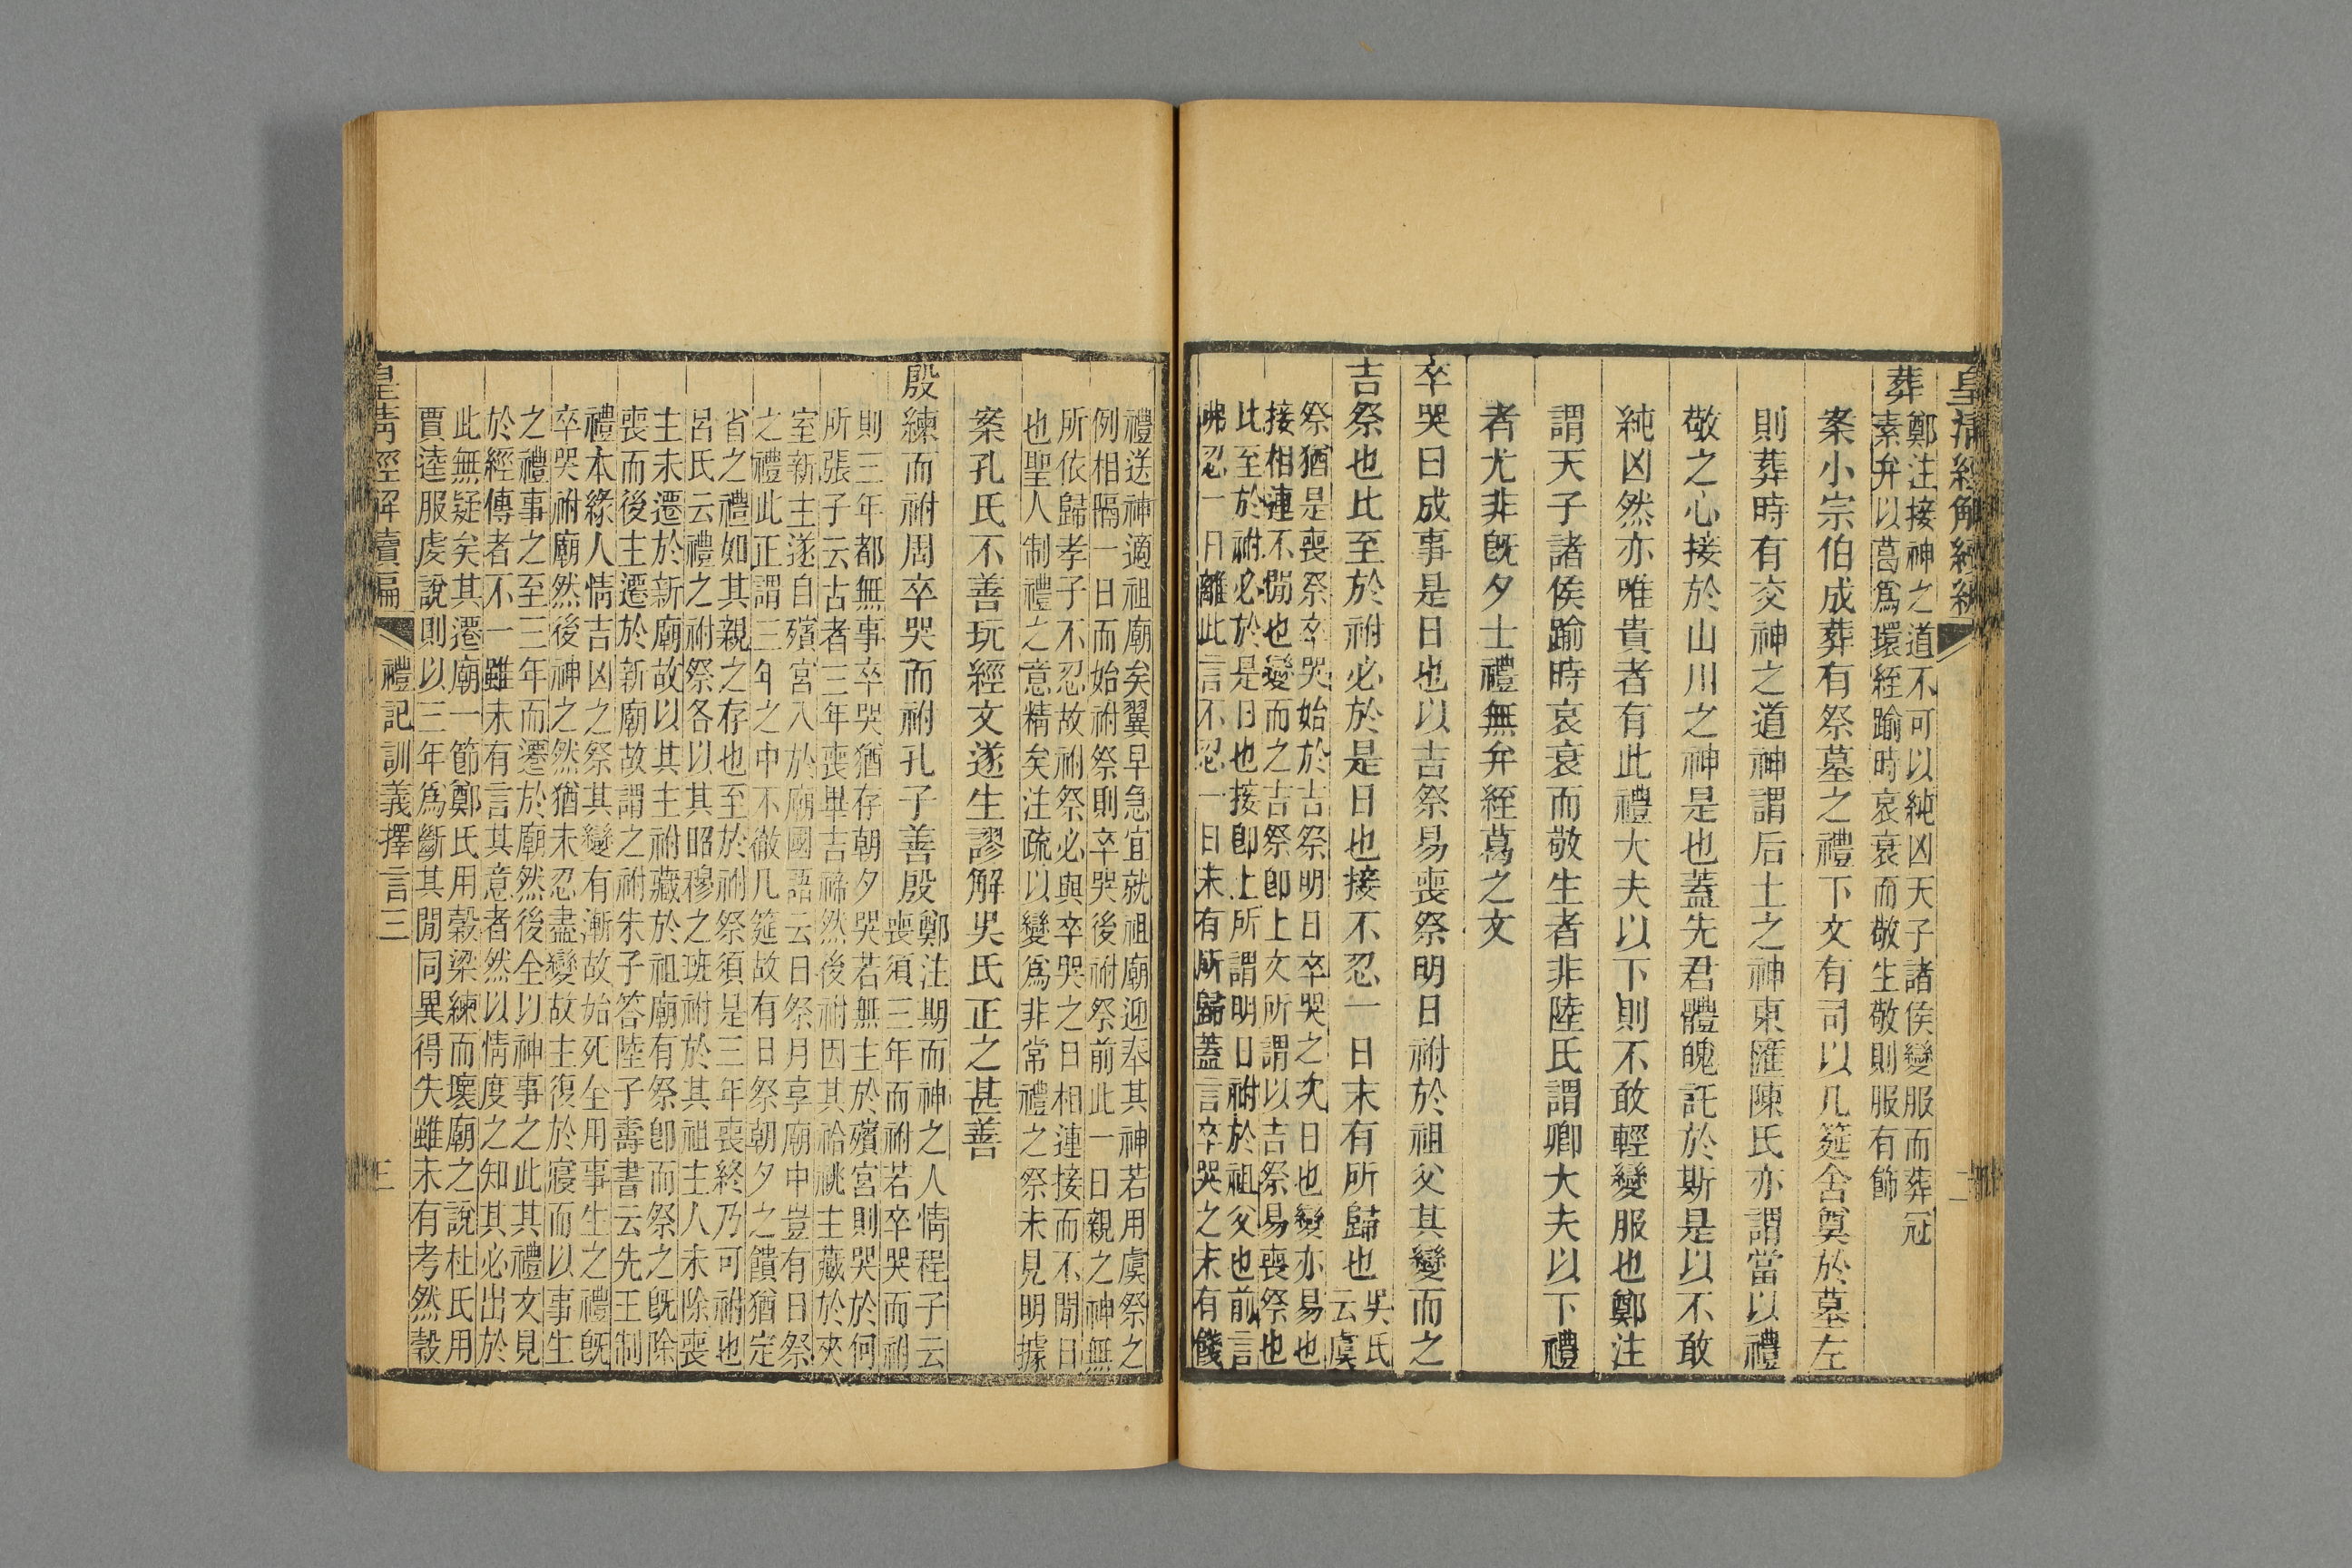 皇清經解續編
葬
鄭注接神之道不可以純凶天子諸侯變服而葬冠
素弁以葛爲環絰踰時哀衰而敬生敬則服有飾
案小宗伯成葬有祭墓之禮下文有司以几筵舍奠於墓左
則葬時有交神之道神謂后土之神東匯陳氏亦謂當以禮
敬之心接於山川之神是也蓋先君體魄託於斯是以不敢
純凶然亦唯貴者有此禮大夫以下則不敢輕變服也鄭注
謂天子諸侯踰時哀衰而敬生者非陸氏謂卿大夫以下禮
者尤非旣夕士禮無弁絰葛之文
卒哭曰成事是日也以吉祭易喪祭明日祔於祖父其變而之
吉祭也比至於祔必於是日也接不忍一日末有所歸也
吳氏
云虞
祭猶是喪祭卒哭始於吉祭明日卒哭之次日也變亦易也
接相連不閒也變而之吉祭卽上文所謂以吉祭易喪祭也
比至於祔必於是日也接卽上所謂明日祔於祖父也前言
弗忍一日離此言不忍一日末有所歸蓋言卒哭之末有餞
禮送神適祖廟矣翼早急宜就祖廟迎奉其神若用虞祭之
例相隔一日而始祔祭則卒哭後祔祭前此一日親之神無
所依歸孝子不忍故祔祭必與卒哭之日相連接而不閒日
也聖人制禮之意精矣注疏以變爲非常禮之祭未見明據
案孔氏不善玩經文遂生謬解吳氏正之甚善
殷練而祔周卒哭而祔孔子善殷
鄭注期而神之人情程子云
喪須三年而祔若卒哭而祔
則三年都無事卒哭猶存朝夕哭若無主於殯宮則哭於何
所張子云古者三年喪畢吉禘然後祔因其祫祧主藏於夾
室新主遂自殯宮入於廟國語云日祭月享廟中豈有日祭
之禮此正謂三年之中不徹几筵故有日祭朝夕之饋猶定
省之禮如其親之存也至於祔祭須是三年喪終乃可祔也
呂氏云禮之祔祭各以其昭穆之班祔於其祖主人未除喪
主未遷於新廟故以其主祔藏於祖廟有祭卽而祭之旣除
喪而後主遷於新廟故謂之祔朱子答陸子壽書云先王制
禮本緣人情吉凶之祭其變有漸故始死全用事生之禮旣
卒哭祔廟然後神之然猶未忍盡變故主復於寢而以事生
之禮事之至三年而遷於廟然後全以神事之此其禮文見
於經傳者不一雖未有言其意者然以情度之知其必出於
此無疑矣其遷廟一節鄭氏用穀梁練而壞廟之說杜氏用
賈逵服虔說則以三年爲斷其閒同異得失雖未有考然穀
皇清經解續編
禮記訓義擇言三
三